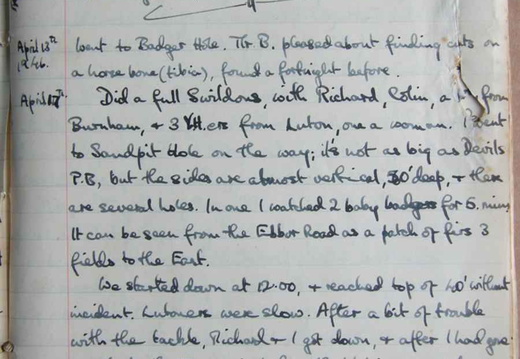 April 13th Went to Badger Hole. Mr. B. pleased about finding cuts on
1946. a horse bone (tibia), found a fortnight before.
April Did a full Swildons, with Richard, Colin, a from
Burnham, + 3 YH.ers from Luton, one a woman. I went
to Sandpit Hole on the way; it's not as big as Devils
P.B, but the sides are almost vertical, 50' deep, + there
are several holes. In one I watched 2 baby badgers for 5 mins.
It can be seen from the Ebbor Road as a patch of firs 3
fields to the East.
We started down at 12.00, + reached top of 40' without
incident. Lutoners were slow. After a bit of trouble
with the tackle, Richard + I got down, + after I had gone